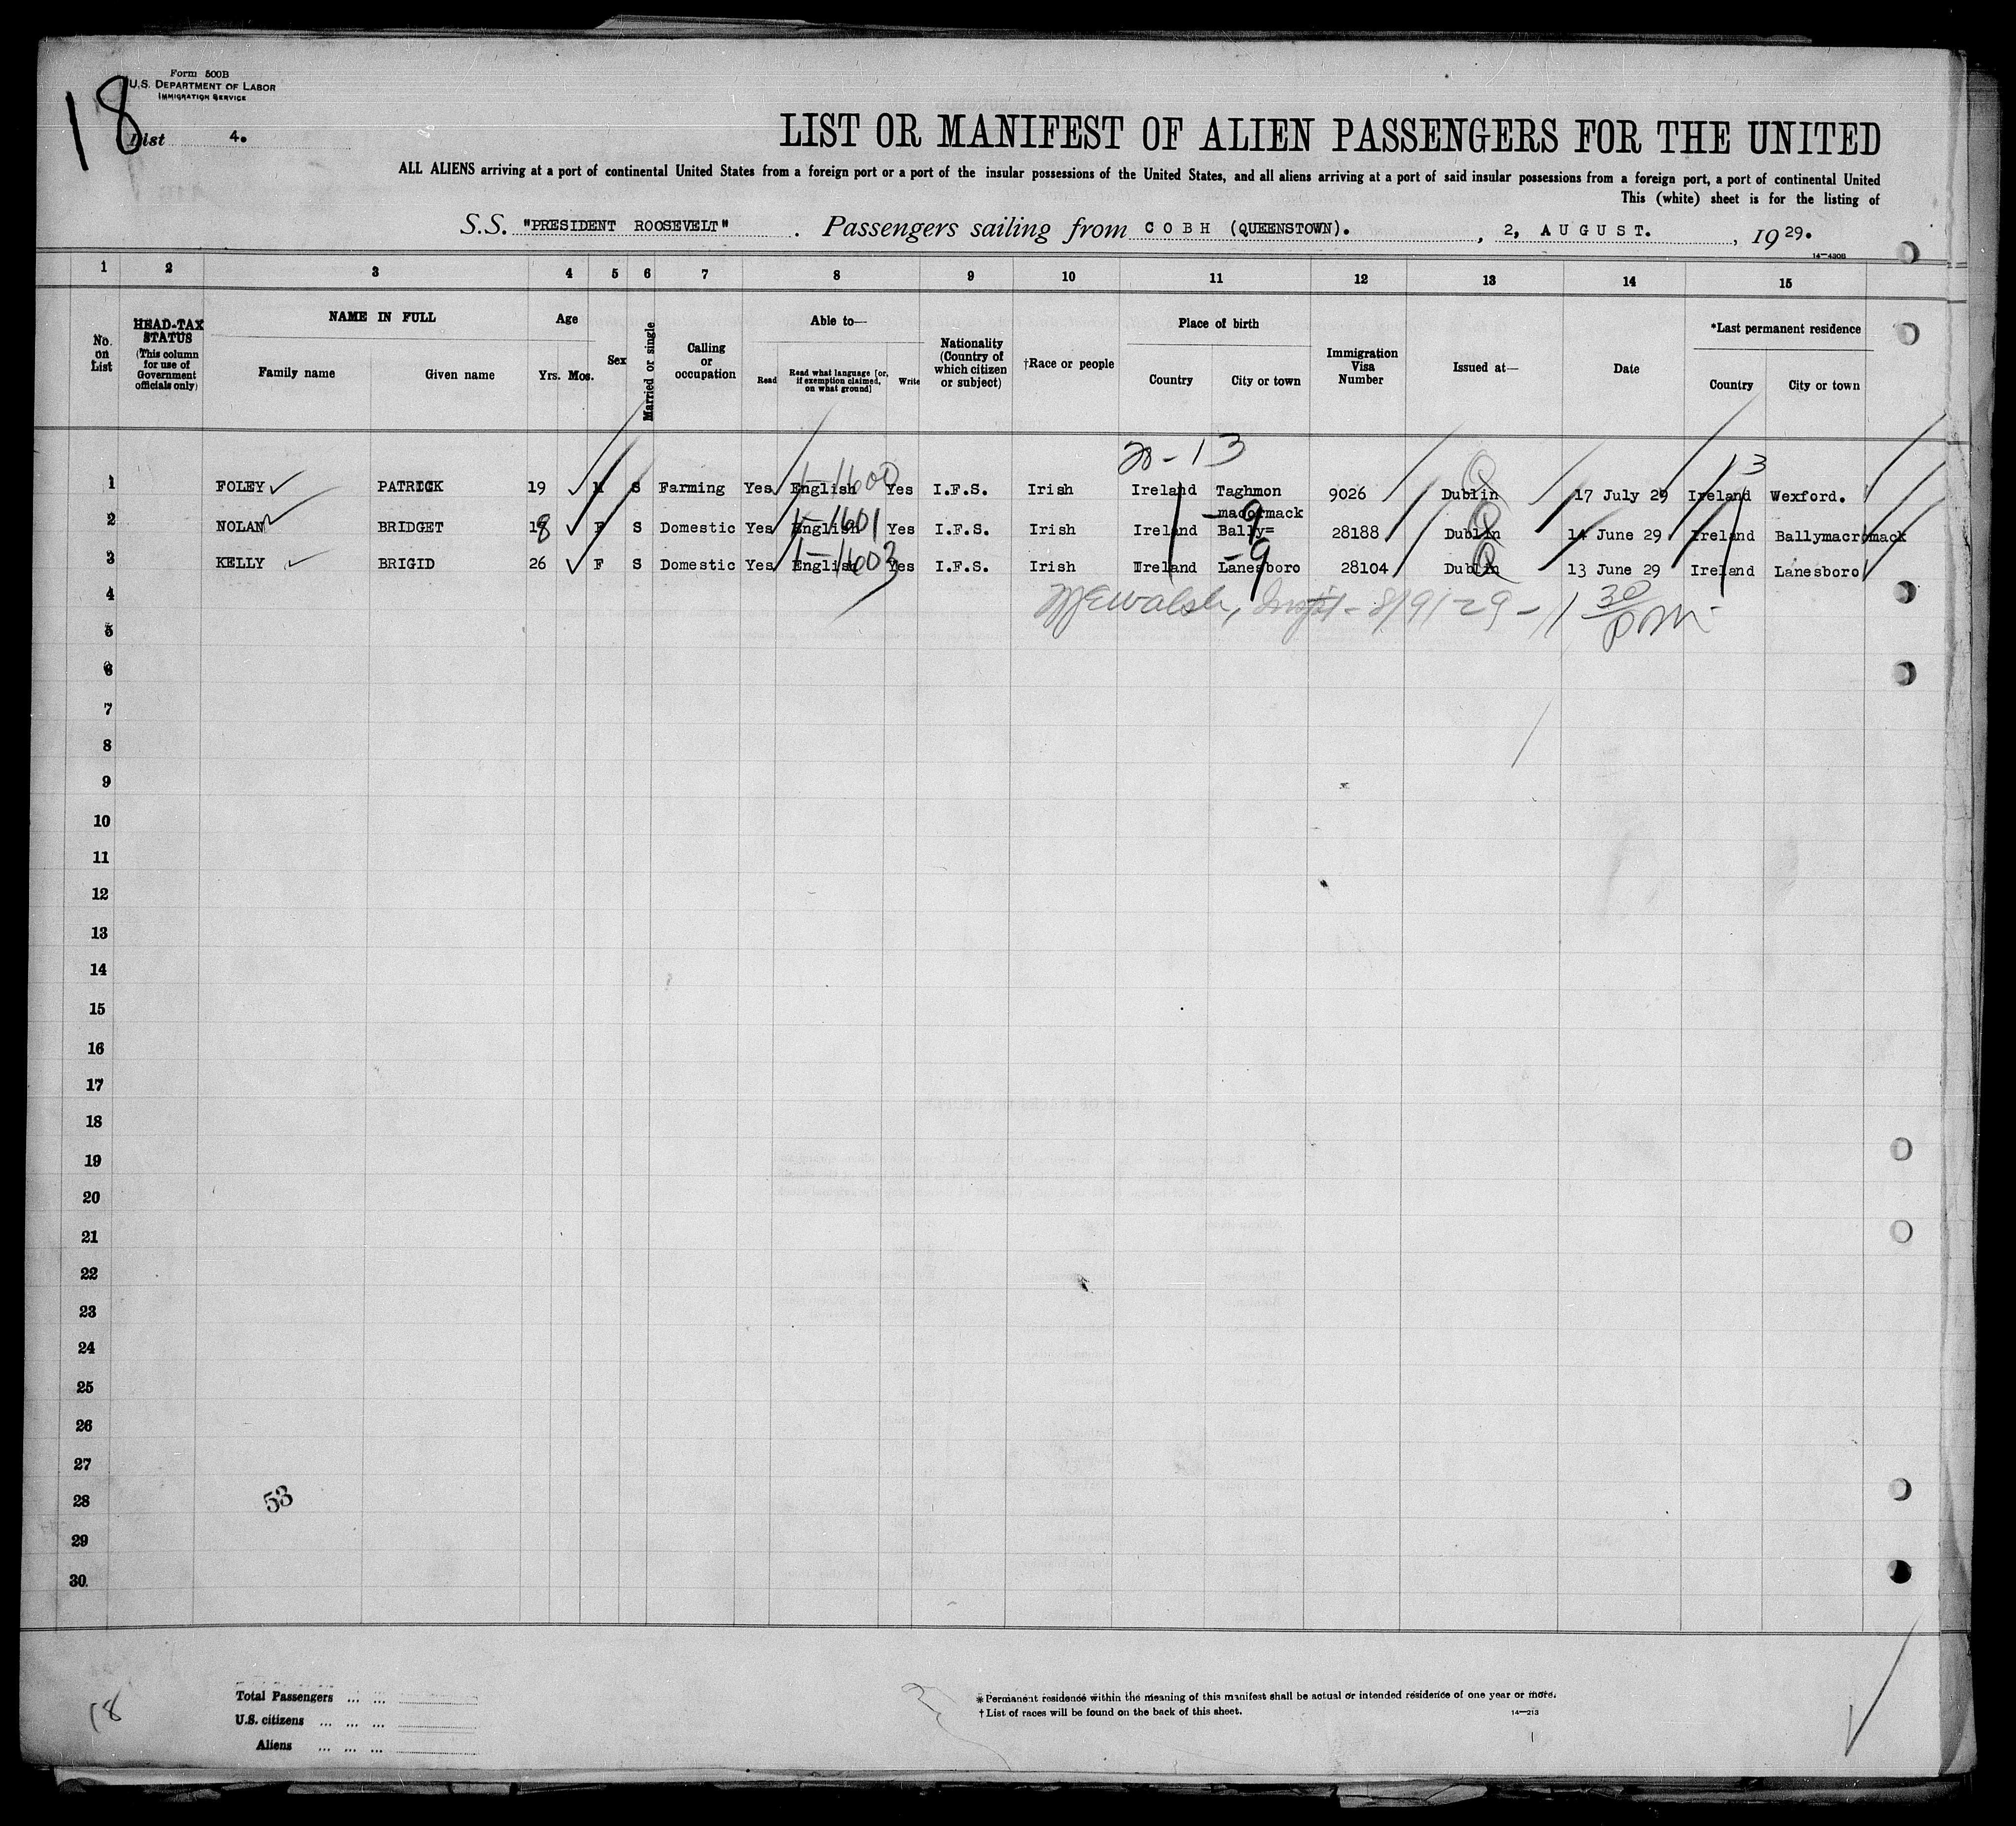 Form 500B
U.S. DEPARTMENT OF LABOR
IMMIGRATION SERVICE
18
List 4.
LIST OR MANIFEST OF ALIEN PASSENGERS FOR THE UNITED
ALL ALIENS arriving at a port of continental United States from a foreign port or a port of the insular possessions of the United States, and all aliens arriving at a port of said insular possessions from a foreign port, a port of continental United
This (white) sheet is for the listing of
S.S. "PRESIDENT ROOSEVELT" . Passengers sailing from COBH (QUEENSTOWN). , 2, AUGUST. , 1929.
14—430B
1 2 3 4 5 6 7 8 9 10 11 12 13 14 15
No. on List
HEAD-TAX STATUS (This column for use of Government officials only)
NAME IN FULL
Family name Given name
Age
Yrs. Mos.
Sex
Married or single
Calling or occupation
Able to—
Read Read what language [or, if exemption claimed, on what ground] Write
Nationality (Country of which citizen or subject)
†Race or people
Place of birth
Country City or town
Immigration Visa Number
Issued at—
Date
*Last permanent residence
Country City or town
20-13
13
1 FOLEY PATRICK 19 M S Farming Yes English 1-1600 Yes I.F.S. Irish Ireland Taghmon 9026 Dublin 17 July 29 Ireland Wexford.
macormack
2 NOLAN BRIDGET 18 F S Domestic Yes English 1-1601 Yes I.F.S. Irish Ireland Bally= -9 28188 Dublin 14 June 29 Ireland Ballymacromack
3 KELLY BRIGID 26 F S Domestic Yes English 1-1603 Yes I.F.S. Irish Ireland Lanesboro -9 28104 Dublin 13 June 29 Ireland Lanesboro
4 Walsh, 8/9/29 - 1 30 pm
5
6
7
8
9
10
11
12
13
14
15
16
17
18
19
20
21
22
23
24
25
26
27
28 53
29
30.
18
Total Passengers ... ...
U.S. citizens ... ... ...
Aliens ... ... ...
* Permanent residence within the meaning of this manifest shall be actual or intended residence of one year or more.
† List of races will be found on the back of this sheet.
14—213